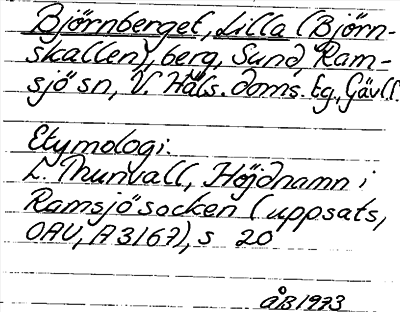 Björnberget, Lilla (Björn-
skallen), berg, Sund, Ram-
sjö sn, V. Häls. doms. tg, Gävll.
Etymologi:
L. Thunvall, Höjdnamn i
Ramsjö socken (uppsats,
OAU, A 3167), s 20
ÅB 1973